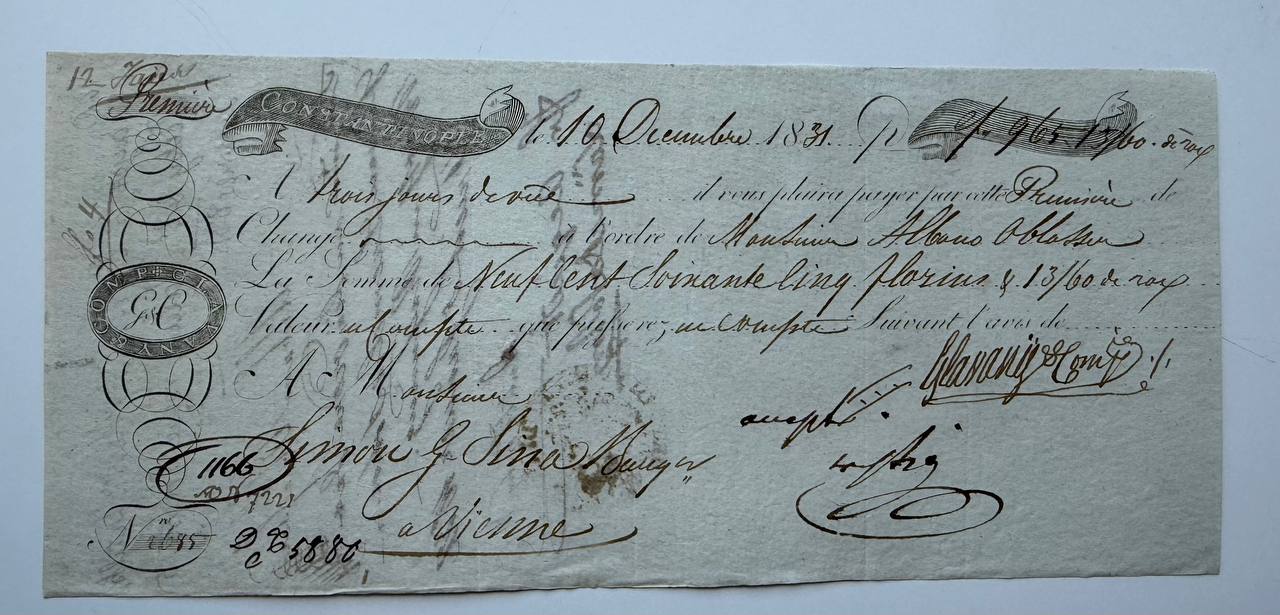 12
Première
CONSTANTINOPLE le 10 Decembre 1831. P f. 965.13/60. de
A trois jours de vüe il vous plaira payer par cette Première de
Change à l'ordre de Monsieur Albano Oblasser
La Somme de Neuf Cent Soixante Cinq florins & 13/60 de
Valeur en Compte que passerez en Compte Suivant l'avis de
GLAVANY & COMP.
G&C
Glavany & Comp.
A Monsieur
Simon G Sina Banqr
accepté
1166
7221
a Vienne
No
5880